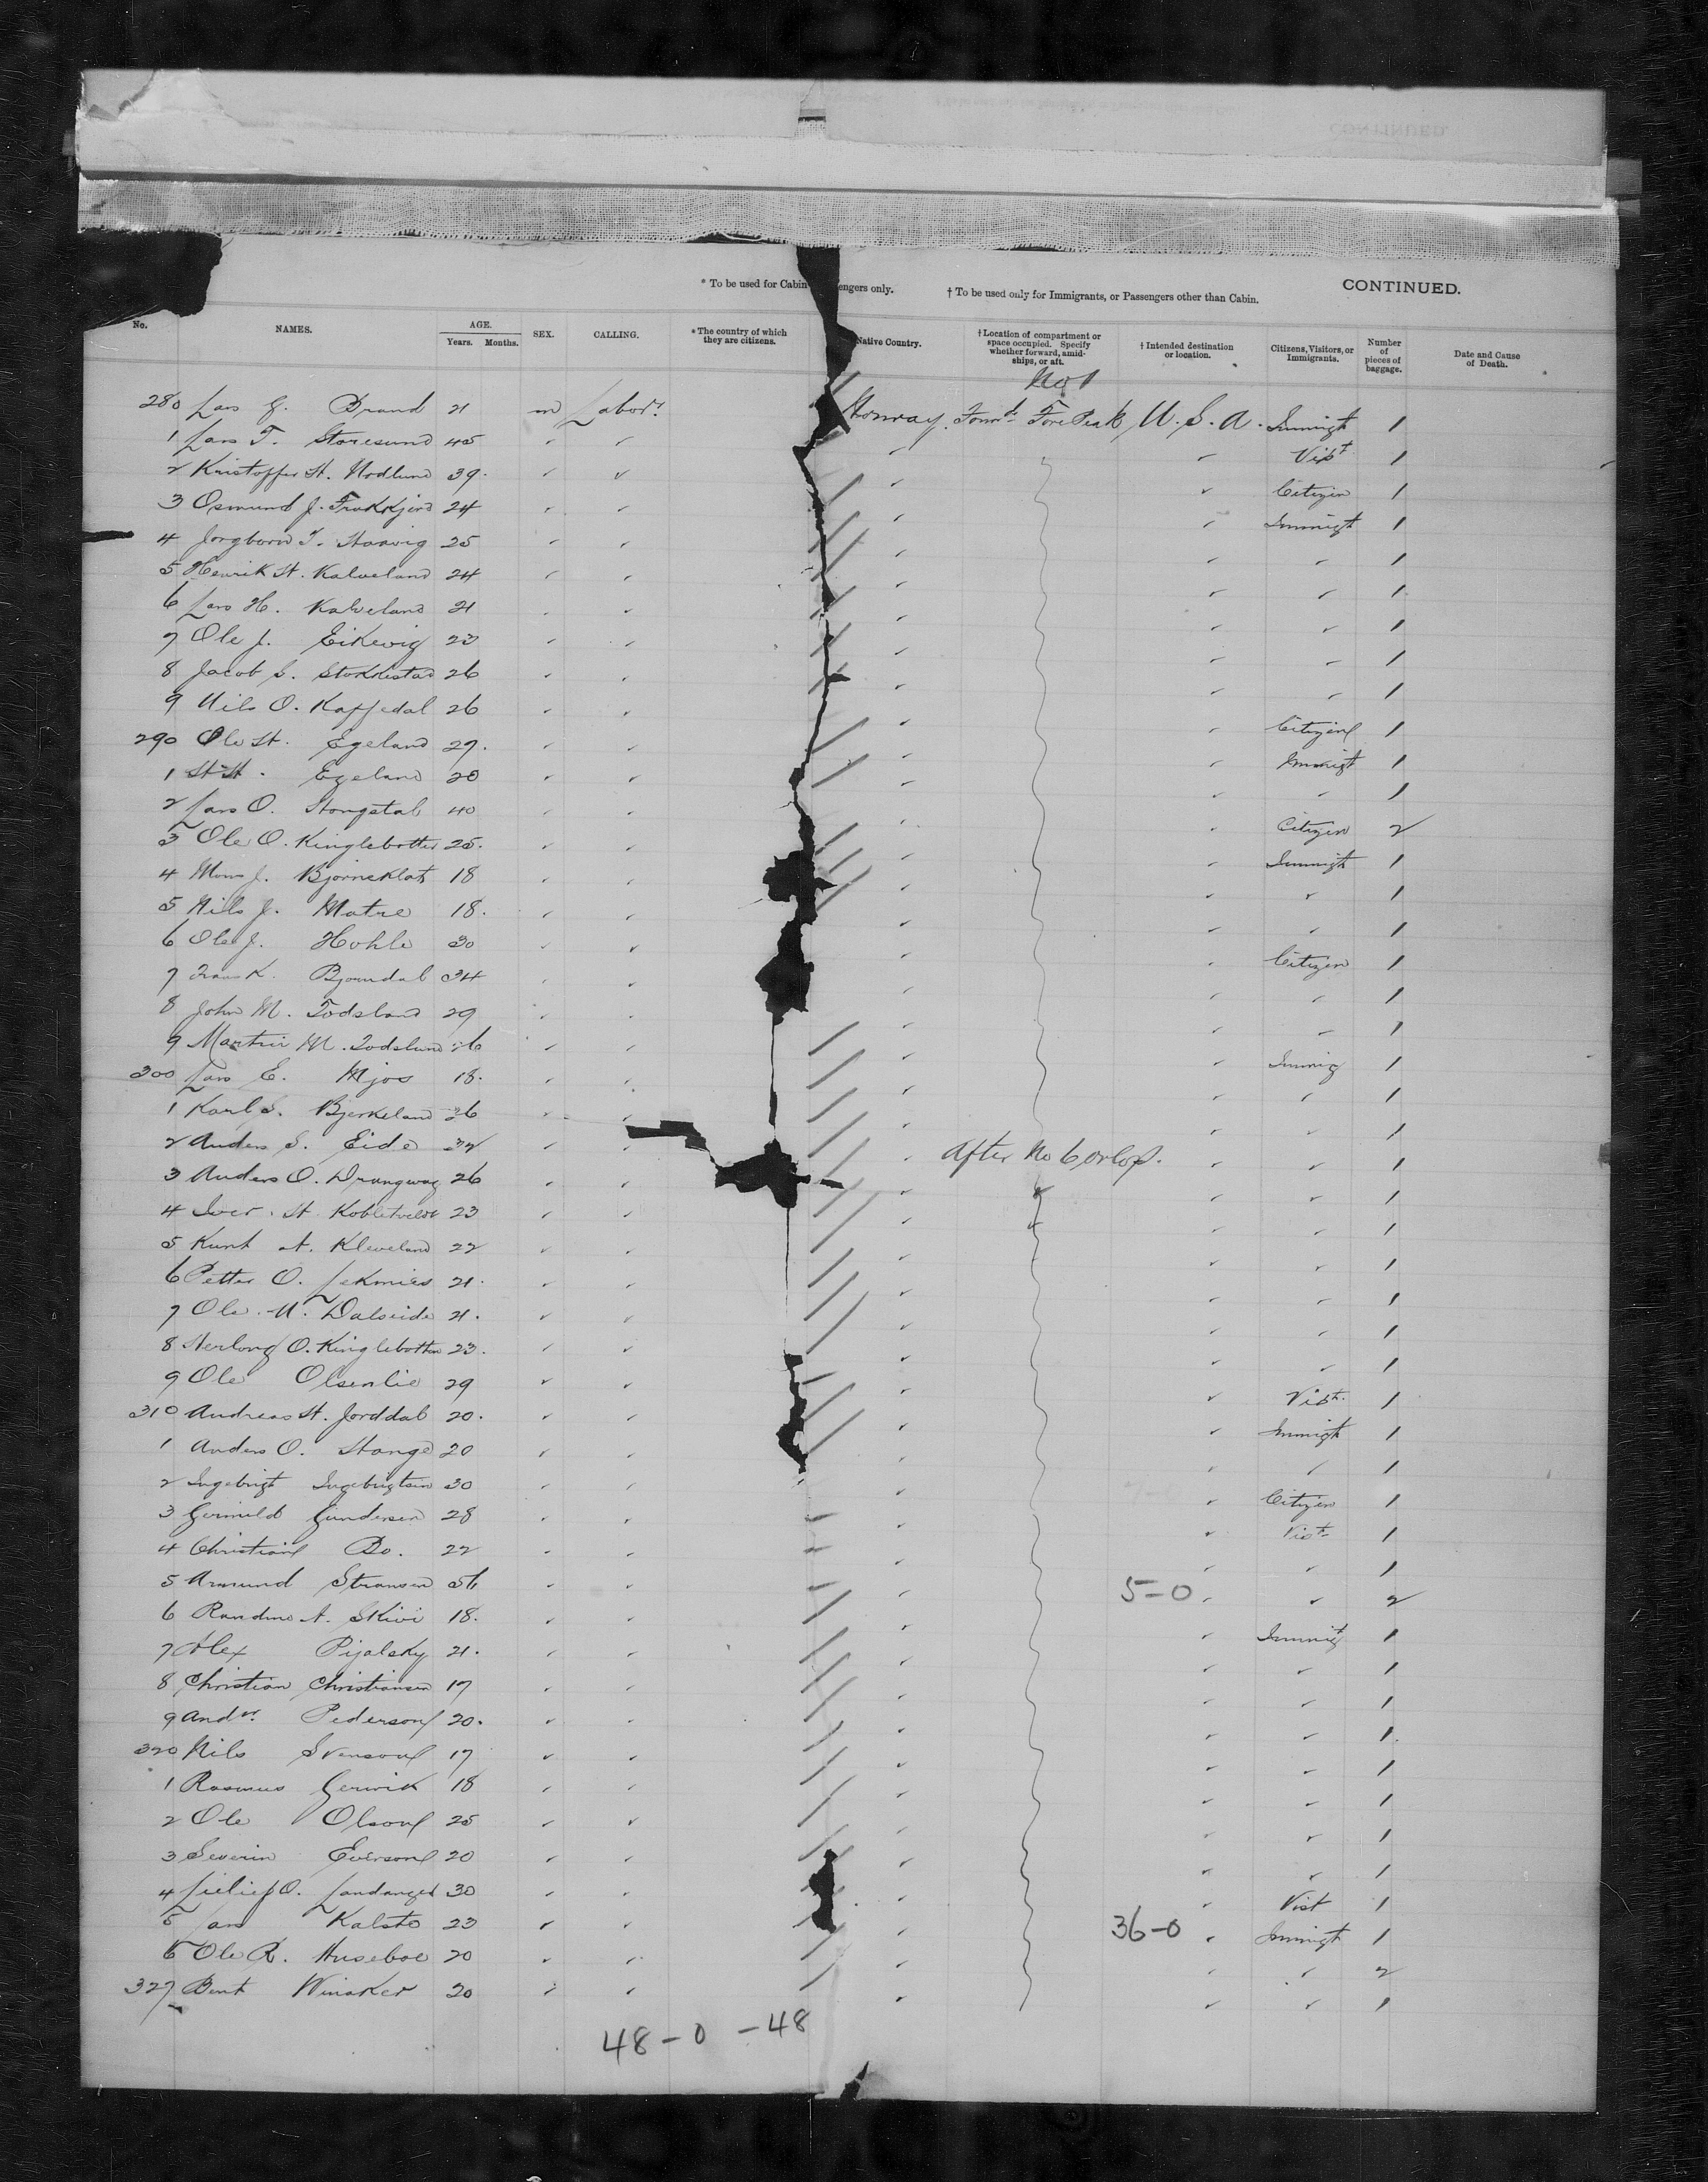 CONTINUED.
* To be used for Cabin engers only. † To be used only for Immigrants, or Passengers other than Cabin.
No. NAMES. AGE. Years. Months. SEX. CALLING. * The country of which they are citizens. Native Country. † Location of compartment or space occupied. Specify whether forward, amidships, or aft. † Intended destination or location. Citizens, Visitors, or Immigrants. Number of pieces of baggage. Date and Cause of Death.
No 1
280 Lars G. Brand 21 m Labor Norway Forwd Fore Peak U.S.A. Immigt 1
1 Lars T. Storesund 45 Vist 1
2 Kristoffer St. Nodlund 39 Citizen 1
3 Osmund J. 24 Immigt 1
4 T. 25 1
5 Henrik St. Kalveland 24 1
6 Lars H. Kalveland 21 1
7 Ole J. Eikevig 23 1
8 Jacob S. Stokkestad 26 1
9 Nils O. 26 Citizen 1
290 Ole St. Egeland 27 Immigt 1
1 St. Egeland 20 1
2 Lars O. 40 Citizen 2
3 Ole O. Kinglebotten 25 Immigt 1
4 Mons J. 18 1
5 Nils J. Matre 18 1
6 Ole J. 30 Citizen 1
7 K. 34 1
8 John M. Todsland 29 1
9 Martin M. 26 Immig 1
300 Lars E. Mjos 18 1
1 Karl S. Bjerkeland 26 1
2 Anders S. Eide 32 After No 6 orlop. 1
3 Anders O. 26 1
4 Iver St. 23 1
5 Kleveland 22 1
6 Petter O. 21 1
7 Ole N. Dalseide 21 1
8 O. Kinglebotten 23 1
9 Ole Olsenlie 29 Vist 1
310 Andreas St. Jorddal 20 Immigt 1
1 Anders O. Stange 20 1
2 Ingebrigt Ingebrigtsen 30 Citizen 1
3 Gundersen 28 Vist 1
4 Christian Do. 22 1
5 56 5-0 2
6 Skivi 18 Immigt 1
7 Alex Pijalsky 21 1
8 Christian Christiansen 17 1
9 Andw. Pederson 20 1
320 Nils Svenson 17 1
1 Rasmus 18 1
2 Ole Olson 25 1
3 Severin Everson 20 1
4 O. Landanger 30 Vist 1
5 Lars Kalsto 23 36-0 Immigt 1
6 Ole R. Huseboe 20 2
327 20 1
48-0-48